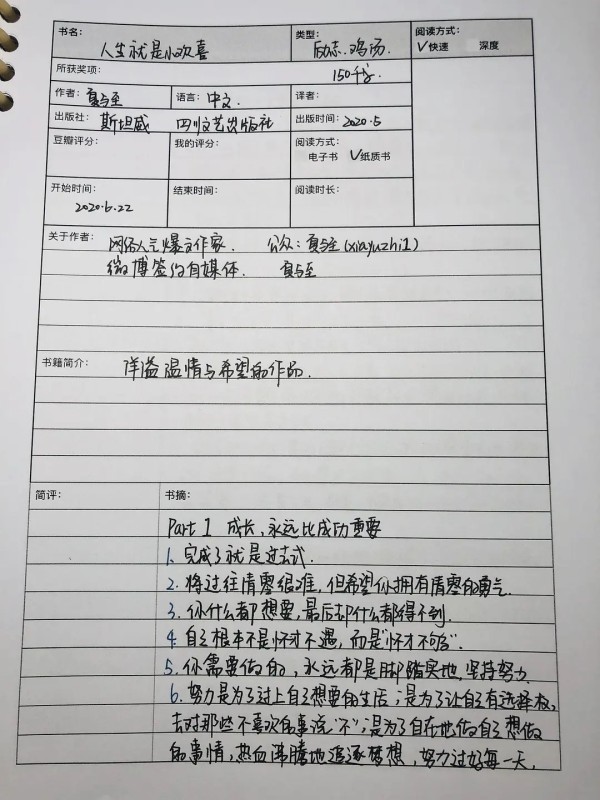 书名： 人生就是小欢喜 类型： 励志.鸡汤. 阅读方式：
✓快速 深度
所获奖项： 150千字.
作者： 夏与至 语言： 中文. 译者：
出版社： 斯坦威 四川文艺出版社 出版时间： 2020.5
豆瓣评分： 我的评分： 阅读方式：
电子书 ✓纸质书
开始时间： 结束时间： 阅读时长：
2020.6.22
关于作者： 网络人气爆文作家. 公众：夏与至(xiayuzhi1)
微博签约自媒体. 夏与至
书籍简介： 洋溢温情与希望的作品.
简评： 书摘：
Part 1 成长,永远比成功重要
1. 完成了就是过去式.
2. 将过往清零很难,但希望你拥有清零的勇气.
3. 你什么都想要,最后却什么都得不到.
4. 自己根本不是怀才不遇,而是"怀才不够".
5. 你需要做的,永远都是脚踏实地,坚持努力.
6. 努力是为了过上自己想要的生活;是为了让自己有选择权,
去对那些不喜欢的事说"不";是为了自在地做自己想做
的事情,热血沸腾地追逐梦想,努力过好每一天.